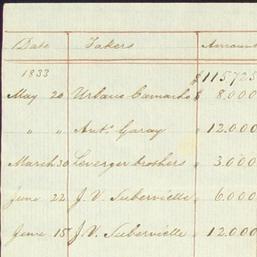 Date Takers Amount
1833 $115725
May 20 Urbano Camacho $ 8,000
" " Ant.º Garay " 12.000
March 30 Leverger brothers " 3.000
June 22 J. V. Subervielle " 6.000
June 15 J. V. Subervielle " 12.000